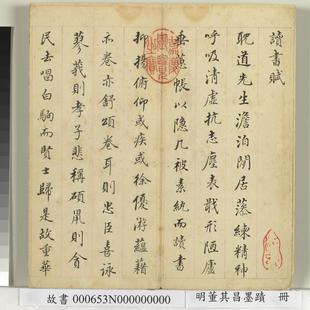 讀書賦
耽道先生澹泊閒居藻練精神
呼吸清虛抗志塵表戢形陋廬
垂蕙帳以隱几被素紈而讀書
抑揚俯仰或疾或徐優游蘊藉
亦卷亦舒頌卷耳則忠臣喜詠
蓼莪則孝子悲稱碩鼠則貪
民去唱白駒而賢士歸是故重華
故書 000653N000000000
明董其昌墨蹟 冊